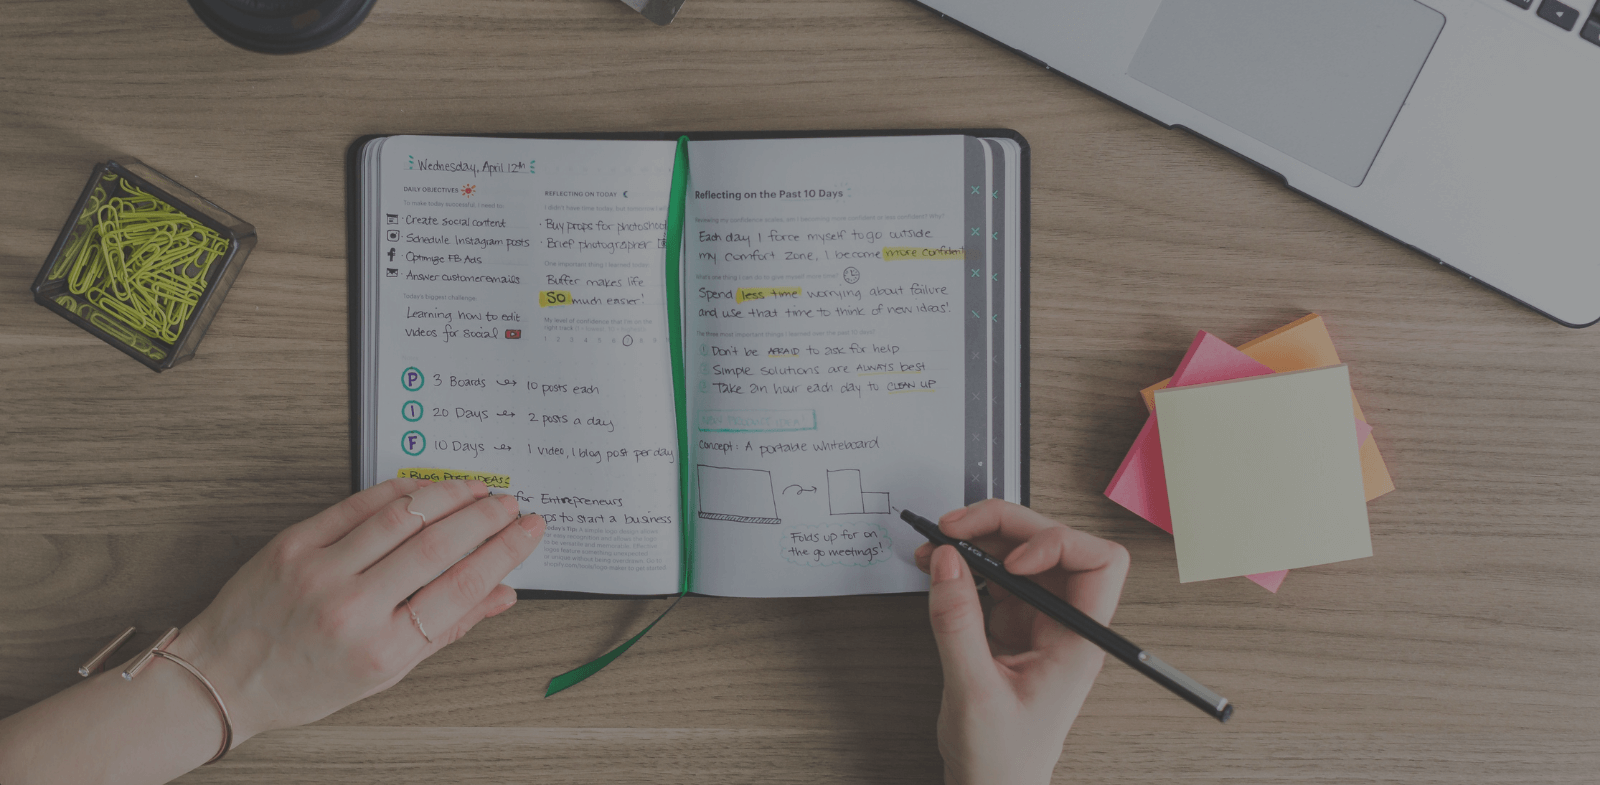 Wednesday, April 12th
DAILY OBJECTIVES
To make today successful, I need to:
· Create social content
· Schedule Instagram posts
· Optimize FB Ads
· Answer customer emails
Today's biggest challenge
Learning how to edit
videos for social
P 3 Boards 10 posts each
I 20 Days 2 posts a day
F 10 Days 1 video, 1 blog post per day
BLOG POST IDEAS:
for Entrepreneurs
to start a business
REFLECTING ON TODAY
I didn't have time today, but tomorrow I will
· Buy props for photoshoot
· Brief photographer
One important thing I learned today
Buffer makes life
SO much easier!
My level of confidence that I'm on the
right track
1 2 3 4 5 6 8 9
Reflecting on the Past 10 Days
Each day I force myself to go outside
my comfort zone, I become more confident
Spend less time worrying about failure
and use that time to think of new ideas!
1 Don't be AFRAID to ask for help
2 Simple solutions are ALWAYS best
3 Take an hour each day to CLEAN UP
Concept: A portable whiteboard
Folds up for on
the go meetings!